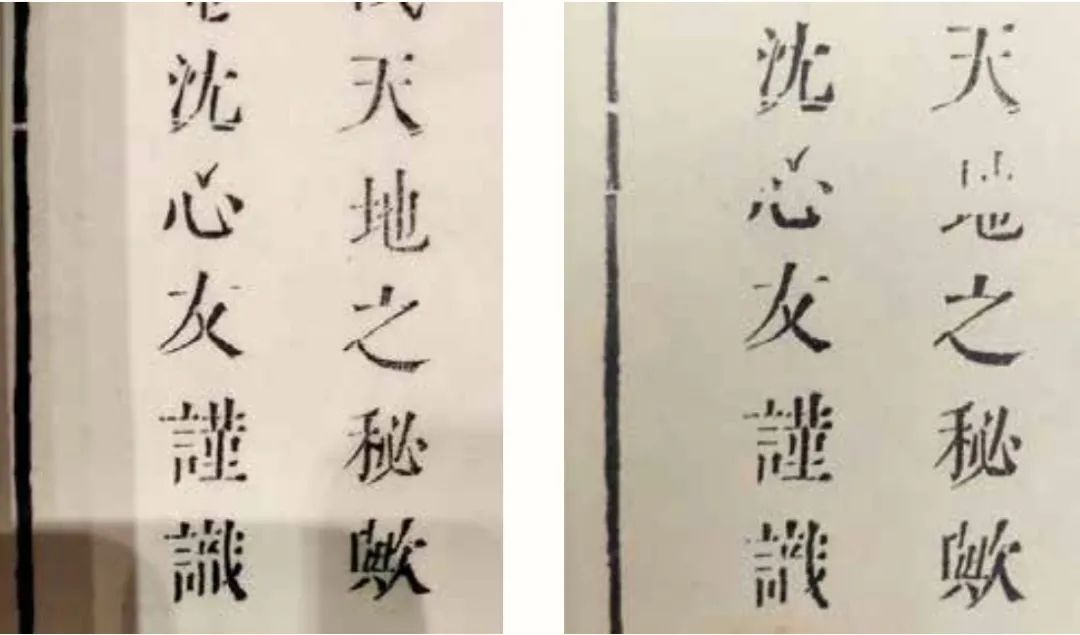 天地之秘歟
沈心友謹識
天地之秘歟
沈心友謹識